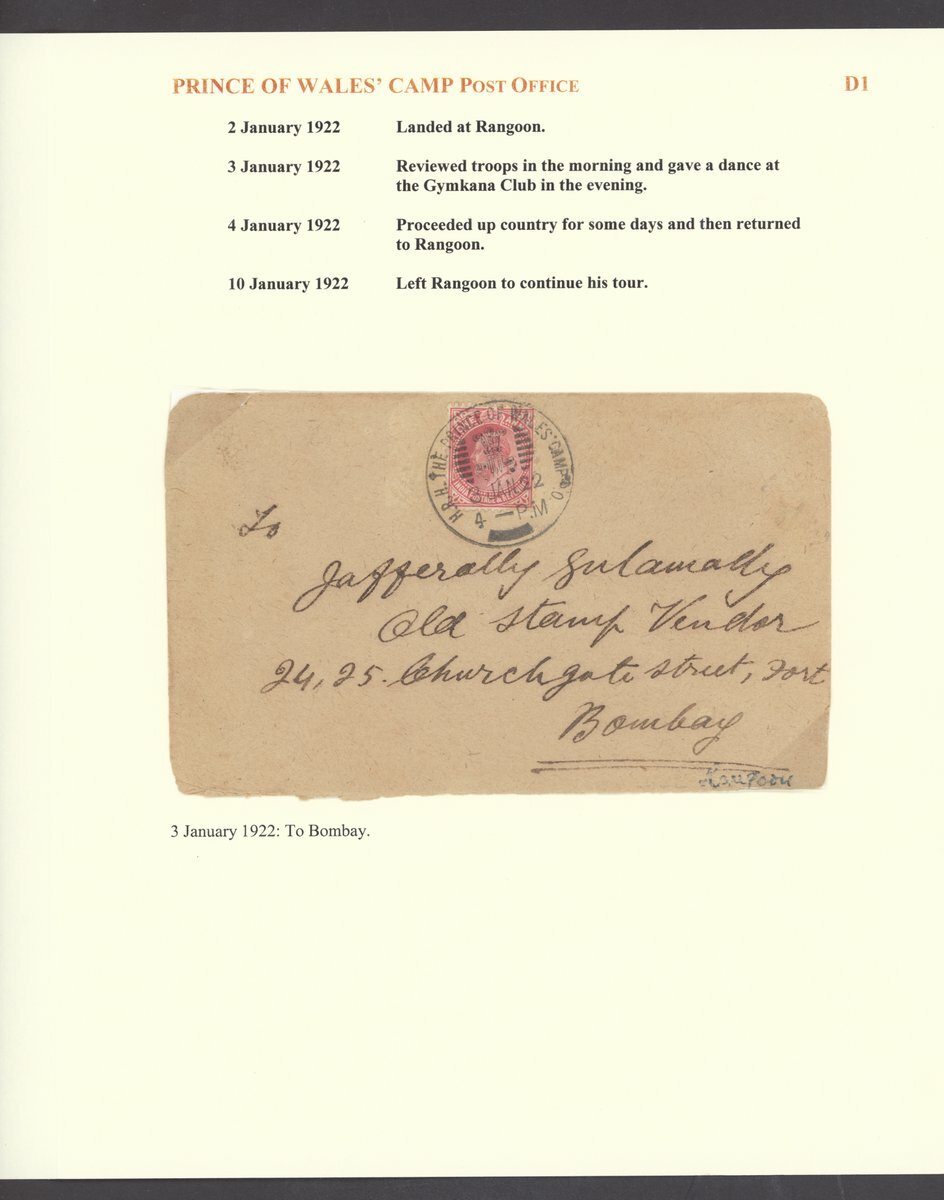 PRINCE OF WALES' CAMP POST OFFICE
D1
2 January 1922 Landed at Rangoon.
3 January 1922 Reviewed troops in the morning and gave a dance at
the Gymkana Club in the evening.
4 January 1922 Proceeded up country for some days and then returned
to Rangoon.
10 January 1922 Left Rangoon to continue his tour.
H.R.H. THE PRINCE OF WALES' CAMP P.O.
3 JAN. 22
4 — P.M
To
Jafferally Gulamally
Old Stamp Vendor
24, 25. Churchgate street, Fort
Bombay
Rangoon
3 January 1922: To Bombay.